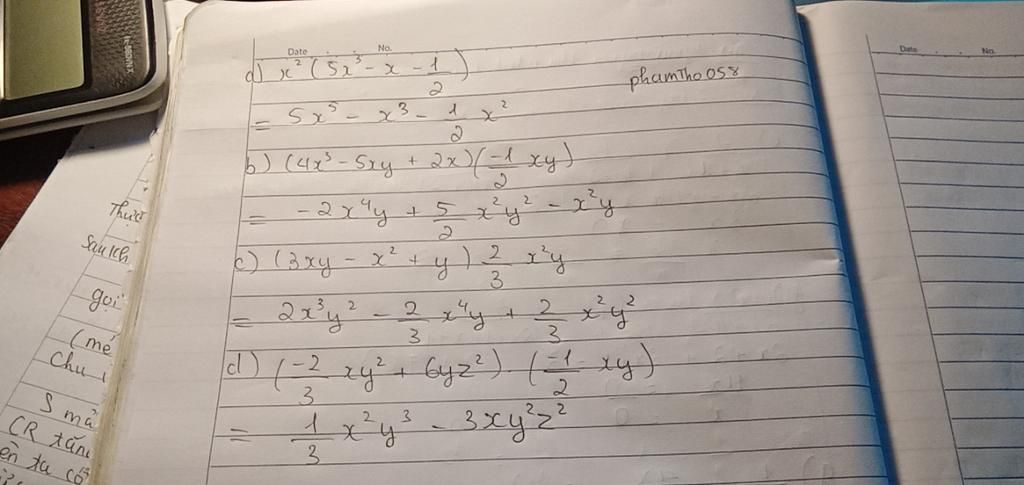 Date . . No.
a) x² (5x³ - x - 1/2)
phamtho058
= 5x⁵ - x³ - 1/2 x²
b) (4x³ - 5xy + 2x) (-1/2 xy)
= -2x⁴y + 5/2 x²y² - x²y
c) (3xy - x² + y) 2/3 x²y
= 2x³y² - 2/3 x⁴y + 2/3 x²y²
d) (-2/3 xy² + 6yz²) . (-1/2 xy)
= 1/3 x²y³ - 3xy²z²
gọi
(mẻ
Chu
S mà
Date . . No.